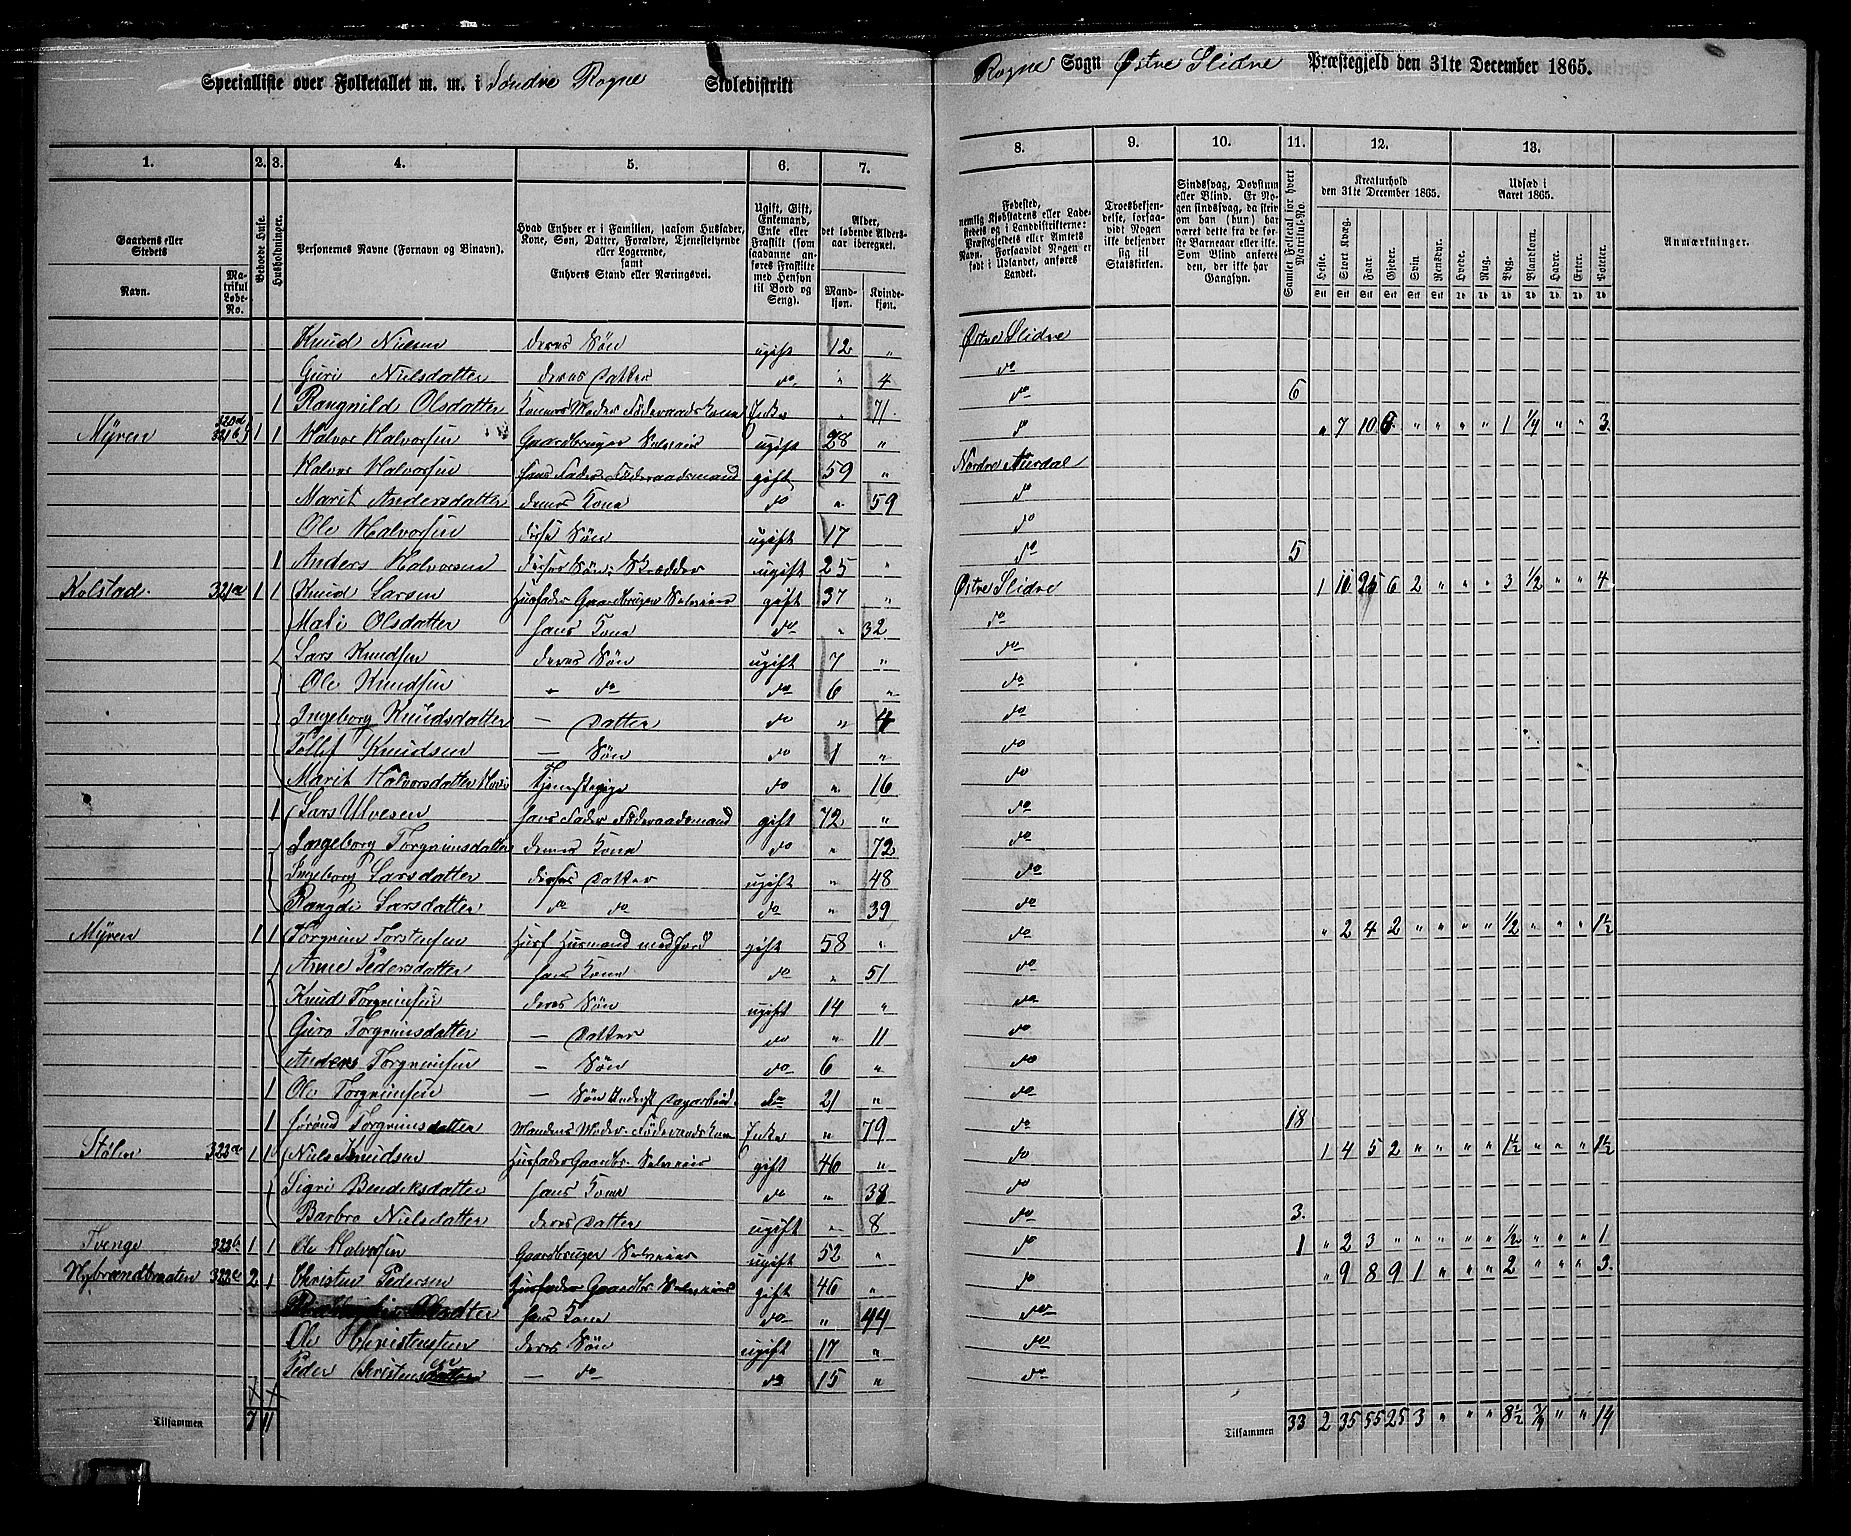 Specialliste over Folketallet m. m. i Søndre Rogne Skoledistrikt
Rogne Sogn Østre Slidre Præstegjeld den 31te December 1865.
1. 2. 3. 4. 5. 6. 7. 8. 9. 10. 11. 12. 13.
Gaardens eller Stedets
Navn.
Matrikul Løbe-No.
Beboede Huse.
Husholdninger.
Personernes Navne (Fornavn og Binavn).
Hvad Enhver er i Familien, saasom Husfader, Kone, Søn, Datter, Forældre, Tjenestetyende eller Logerende, samt Enhvers Stand eller Næringsvei.
Ugift, Gift, Enkemand, Enke eller Fraskilt (som saadanne anføres Fraskilte med Hensyn til Bord og Seng).
Alder, det løbende Aldersaar iberegnet.
Mandkjøn.
Kvindekjøn.
Fødested,
Troesbekjendelse, forsaavidt Nogen ikke bekjender sig til Statskirken.
Sindssvag, Døvstum eller Blind.
Samlet Folketal for hvert Matrikul-No.
Kreaturhold den 31te December 1865.
Heste. Stort Kvæg. Faar. Gjeder. Svin. Rensdyr.
Udsæd i Aaret 1865.
Hvede. Rug. Byg. Blandkorn. Havre. Erter. Poteter.
Anmærkninger.
Knud Nielsen deres Søn ugift 12 " Østre Slidre
Guri Nielsdatter deres Datter do " 4 do
1 Rangnild Olsdatter Konens Moder Føderaadskone Enke " 71 do 6
Myren 1 1 Halvor Halvorsen Gaardbruger Selveier ugift 28 " do " 7 10 6 " " " " 1 1/4 " " 3
Halvor Halvorsen hans Fader Føderaadsmand gift 59 Nordre Aurdal
Marit Andersdatter dennes Kone do " 59 do
Ole Halvorsen disses Søn ugift 17 do
1 Anders Halvorsen disses Søn Skrædder ugift 25 " do 5
Kolstad 321a 1 1 Knud Larsen Husfader Gaardbruger Selveier gift 37 " Østre Slidre 1 16 25 6 2 " " " 3 1/2 " " 4
Mali Olsdatter hans Kone do " 32 do
Lars Knudsen deres Søn ugift 7 " do
Ole Knudsen – do do 6 " do
Ingeborg Knudsdatter – Datter do " 4 do
Tollef Knudsen – Søn do 1 " do
Marit Halvorsdatter Tjenestepige do " 16 do
1 Lars Ulvesen hans Fader Føderaadsmand gift 72 " do
Ingeborg Torgrimsdatter dennes Kone do " 72 do
Ingeborg Larsdatter disses Datter ugift " 48 do
Rangdi Larsdatter do do do " 39 do
Myren 1 1 Torgrim Torstensen Husf Husmand med Jord gift 58 " do " 2 4 2 " " " " 1/2 " " " 1 1/2
Anne Pedersdatter hans Kone do " 51 do
Knud Torgrimsen deres Søn ugift 14 " do
Guro Torgrimsdatter – Datter do " 11 do
Anders Torgrimsen – Søn do 6 " do
1 Ole Torgrimsen – Søn do 21 " do
1 Jørønd Torgrimsdatter Mandens Moder Føderaadskone Enke " 79 do 18
Stølen 323a 1 1 Niels Knudsen Husfader Gaardbr. Selveier gift 46 " do 1 4 5 2 " " " " 1 1/2 " " " 1 1/2
Sigri Bendiksdatter hans Kone do " 38 do
Barbro Nielsdatter deres Datter ugift " 8 do 3
Tvenge 323b 1 1 Ole Halvorsen Gaardbruger Selveier ugift 52 " do 1 " 2 3 " " " " " 1/2 " " " 1
Nybrændbraaten 323c 2 1 Christen Pedersen Husfader Gaardbr. Selveier gift 46 " do " 9 8 9 1 " " " 2 " " " 3
Olsdatter hans Kone do " 44 do
Ole Christensen deres Søn ugift 17 " do
Peder Christensen – do do 15 " do
Tilsammen 7 11
Tilsammen 33 2 35 55 25 3 " " " 8 1/2 3/4 " " 14